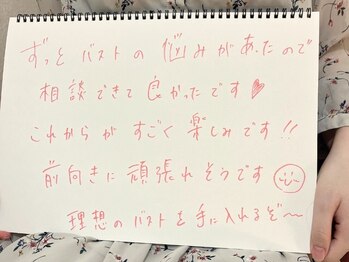 ずっと バストの 悩みがあったので
相談できて 良かったです♥
これからが すごく 楽しみです!!
前向きに 頑張れそうです
理想の バストを 手に入れるぞ〜